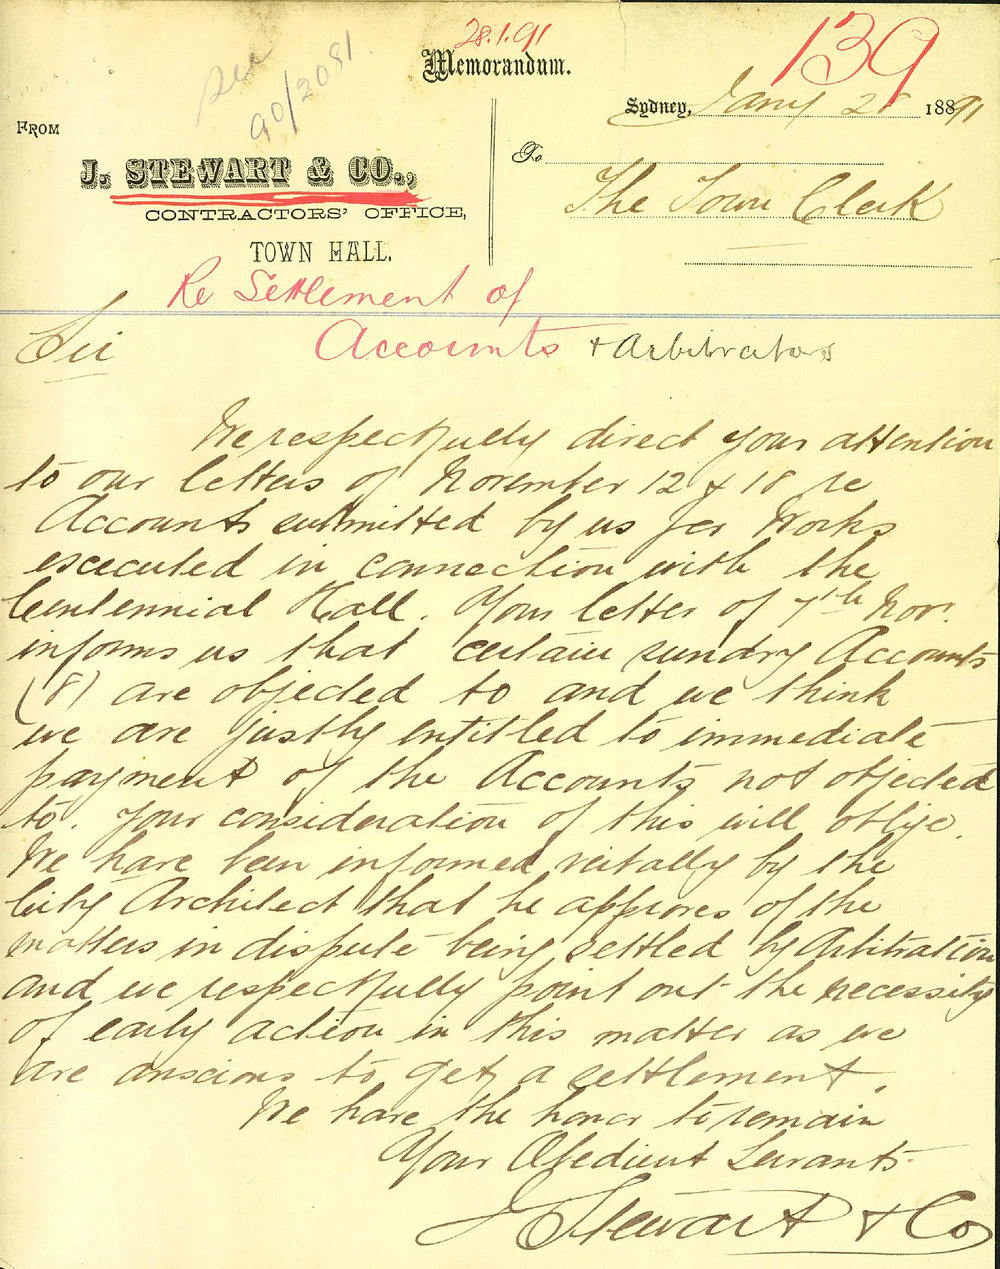 28.1.91
139
see
90/2081
Memorandum.
Sydney, Jany 28 1891
FROM
J. STEWART & CO.,
CONTRACTORS' OFFICE,
TOWN HALL.
To
The Town Clerk
Re Settlement of
Accounts & Arbitrators
Sir
We respectfully direct your attention
to our letters of November 12 & 18 re
Accounts submitted by us for Works
executed in connection with the
Centennial Hall. Your letter of 7th Nov.
informs us that certain sundry Accounts
(8) are objected to and we think
we are justly entitled to immediate
payment of the Accounts not objected
to. Your consideration of this will oblige.
We have been informed verbally by the
City Architect that he approves of the
matters in dispute being settled by Arbitration
and we respectfully point out the necessity
of early action in this matter as we
are anxious to get a settlement.
We have the honor to remain
Your Obedient Servants
J Stewart & Co